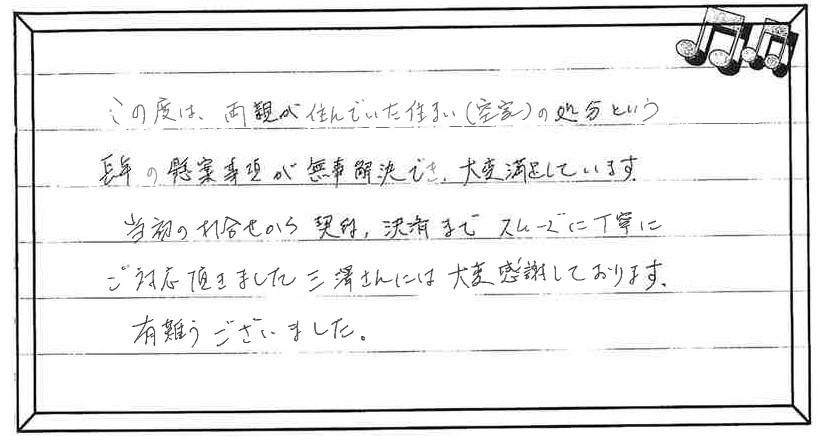 この度は、両親が住んでいた住まい(空家)の処分という
長年の懸案事項が無事解決でき、大変満足しています。
当初の打合せから契約、決済までスムーズに丁寧に
ご対応頂きました三澤さんには大変感謝しております。
有難うございました。